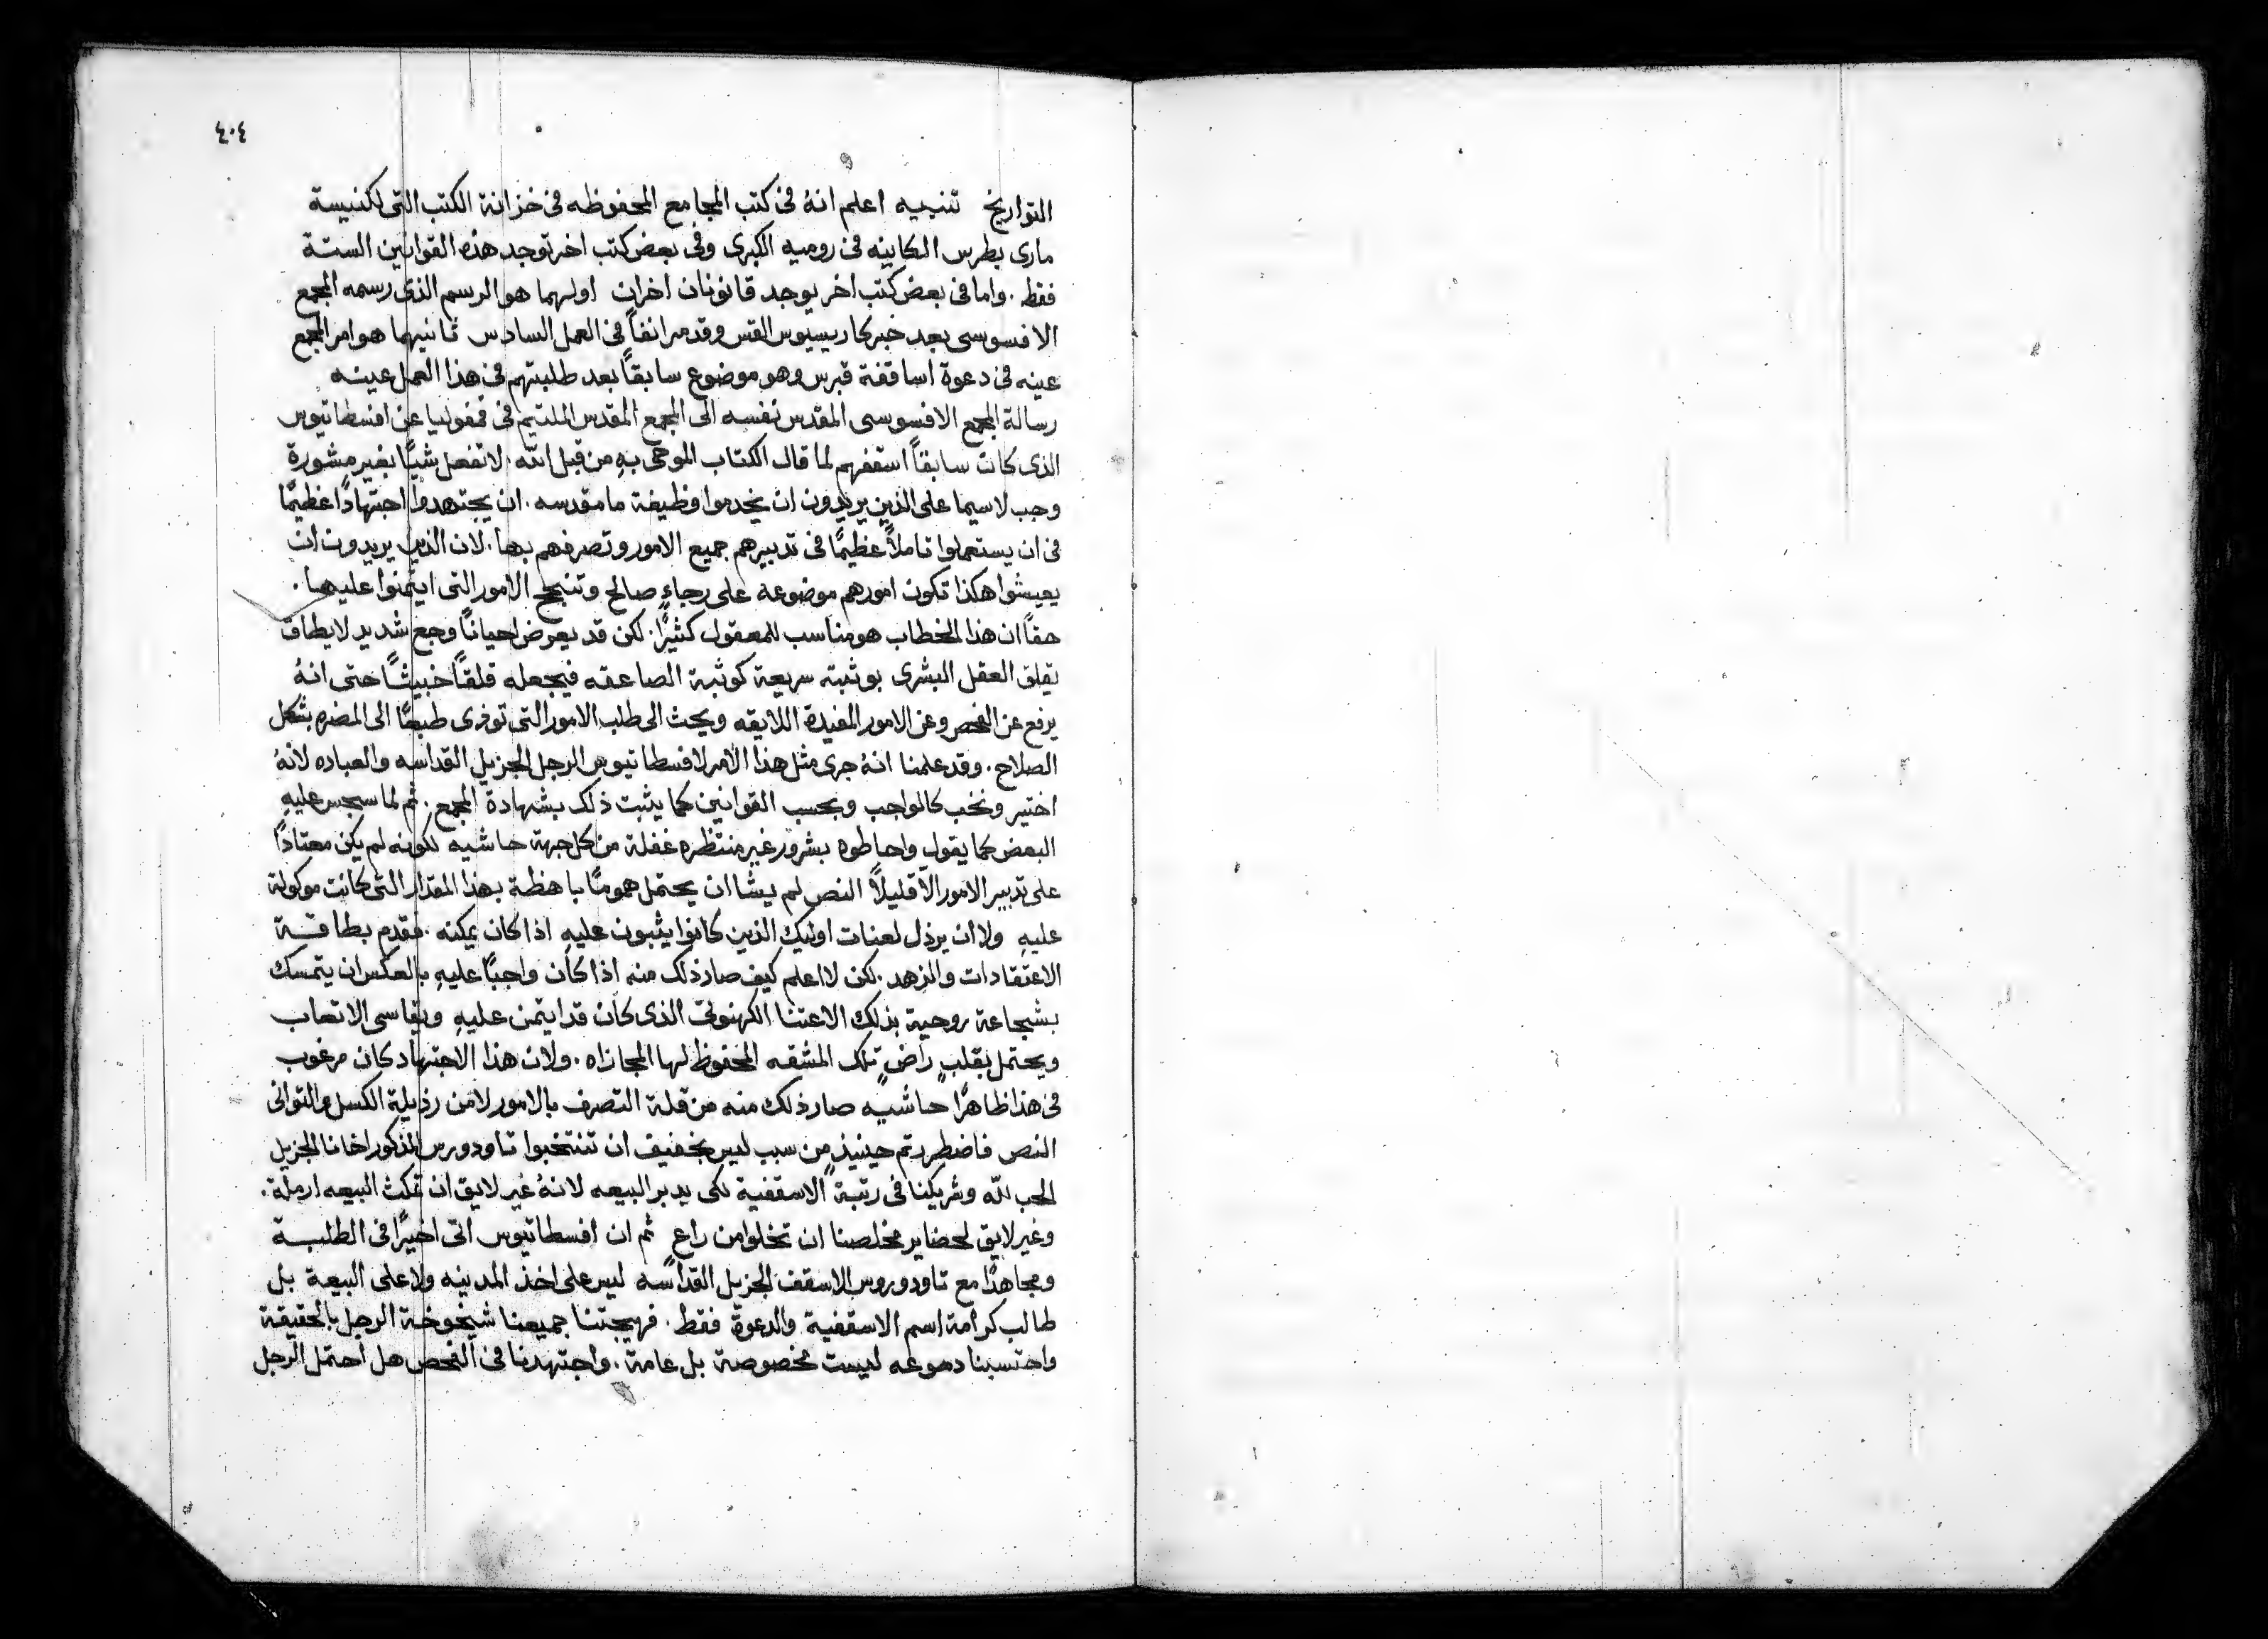 ٤٠٤
التواريخ تنبيه اعلم انهُ فى كتب المجامع المحفوظه فى خزانة الكتب التى لكنيسة
مارى بطرس الكاينه فى روميه الكبرى وفى بعض كتب اخر توجد هذه القوانين الستة
فقط . واما فى بعض كتب اخر يوجد قانونان اخران اولهما هو الرسم الذى رسمه المجمع
الافسوسى بعد خبر كاريسيوس القس وقد مر انفاً فى العمل السادس ثانيهما هو امر المجمع
عينه فى دعوة اساقفة قبرس وهو موضوع سابقاً بعد طلبتهم فى هذا العمل عينه
رسالة المجمع الافسوسى المقدس نفسه الى المجمع المقدس الملتيم فى قمفوليا عن افسطاتيوس
الذى كان سابقاً اسقفهم لما قال الكتاب الموحى بهِ من قبل الله . لا تفعل شياً بغير مشورة
وجب لاسيما على الذين يريدون ان يخدموا وظيفة ما مقدسه . ان يجتهدوا اجتهادًا عظيمًا
فى ان يستعملوا تاملاً عظيمًا فى تدبيرهم جميع الامور وتصرفهم بها . لان الذين يريدون ان
يعيشوا هكذا تكون امورهم موضوعه على رجاءٍ صالح وتنجح الامور التى ايتمنوا عليها .
حقاً ان هذا الخطاب هو مناسب للمعقول كثيرًا . لكن قد يعرض احيانًا وجع شديد لا يطاق
يقلق العقل البشرى بوثبته سريعة كوثبة الصاعقه فيجعله قلقًا خبيثًا حتى انهُ
يرفع عن الفحص وعن الامور المفيدة اللايقه ويحث الى طلب الامور التى توذى طبعًا الى المضره بشكل
الصلاح . وقد علمنا انهُ جرى مثل هذا الامر لافسطاتيوس الرجل الجزيل القداسه والعباده لانهُ
اختير ونخب كالواجب وبحسب القوانين كما يثبت ذلك بشهادة المجمع . ثم لما سجس عليهِ
البعض كما يقول واحاطوه بشرور غير منتظره غفلة من كل جهة حاشيه لكونه لم يكن معتادًا
على تدبير الامور الّا قليلاً النص لم يشا ان يحتمل همومًا باهظة بهذا المقدار التى كانت موكولة
عليهِ ولا ان يرذل لعنات اوليك الذين كانوا يثبون عليهِ اذا كان يمكنه . فقدم بطاقة
الاعتقادات والزهد . لكن لا اعلم كيف صار ذلك منه اذا كان واجبًا عليهِ بالعكس ان يتمسك
بشجاعة روحية بذلك الاعتنا الكهنوتى الذى كان قد ايتمن عليهِ ويقاسى الاتعاب
ويحتمل بقلبٍ راضٍ تلك المشقه المحفوظ لها المجازاه . ولان هذا الاجتهاد كان مرغوب
فى هذا ظاهرًا حاشيه صار ذلك منه من قلة التصرف بالامور لا من رذيلة الكسل والتوانى
النص فاضطررتم حينيذٍ من سبب ليس بخفيف ان تنتخبوا تاودورس المذكور اخانا الجزيل
الحب لله وشريكنا فى رتبة الاسقفية لكى يدبر البيعه لانهُ غير لايق ان تمكث البيعه ارملة .
وغير لايق لحضاير مخلصنا ان تخلوا من راعٍ ثم ان افسطاتيوس اتى اخيرًا فى الطلبة
ومجاهدًا مع تاودوروس الاسقف الجزيل القداسه ليس على اخذ المدينه ولا على البيعة بل
طالب كرامة اسم الاسقفية والدعوة فقط . فهيجتنا جميعنا شيخوخة الرجل بالحقيقة
واحتسبنا دموعه ليست مخصوصة بل عامة . واجتهدنا فى الفحص هل احتمل الرجل